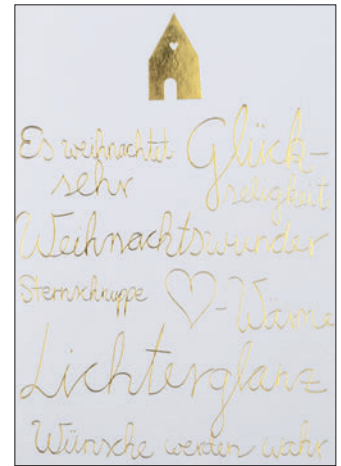 Es weihnachtet
sehr
Glück-
seligkeit
Weihnachtswunder
Sternschnuppe ♡-Wärme
Lichterglanz
Wünsche werden wahr